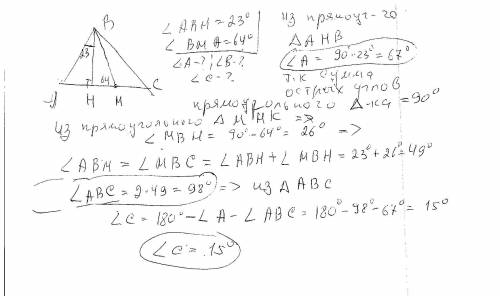 B
23
64
A H M C
∠ABH = 23°
∠BMA = 64°
∠A - ? ; ∠B - ?
∠C - ?
Из прямоуг-го
△AHB
∠A = 90° - 23° = 67°
т.к сумма
острых углов
прямоугольного △-ка = 90°
Из прямоугольного △MHK =>
∠MBH = 90° - 64° = 26° =>
∠ABM = ∠MBC = ∠ABH + ∠MBH = 23° + 26° = 49°
∠ABC = 2·49 = 98° => из △ABC
∠C = 180° - ∠A - ∠ABC = 180° - 98° - 67° = 15°
∠C = 15°